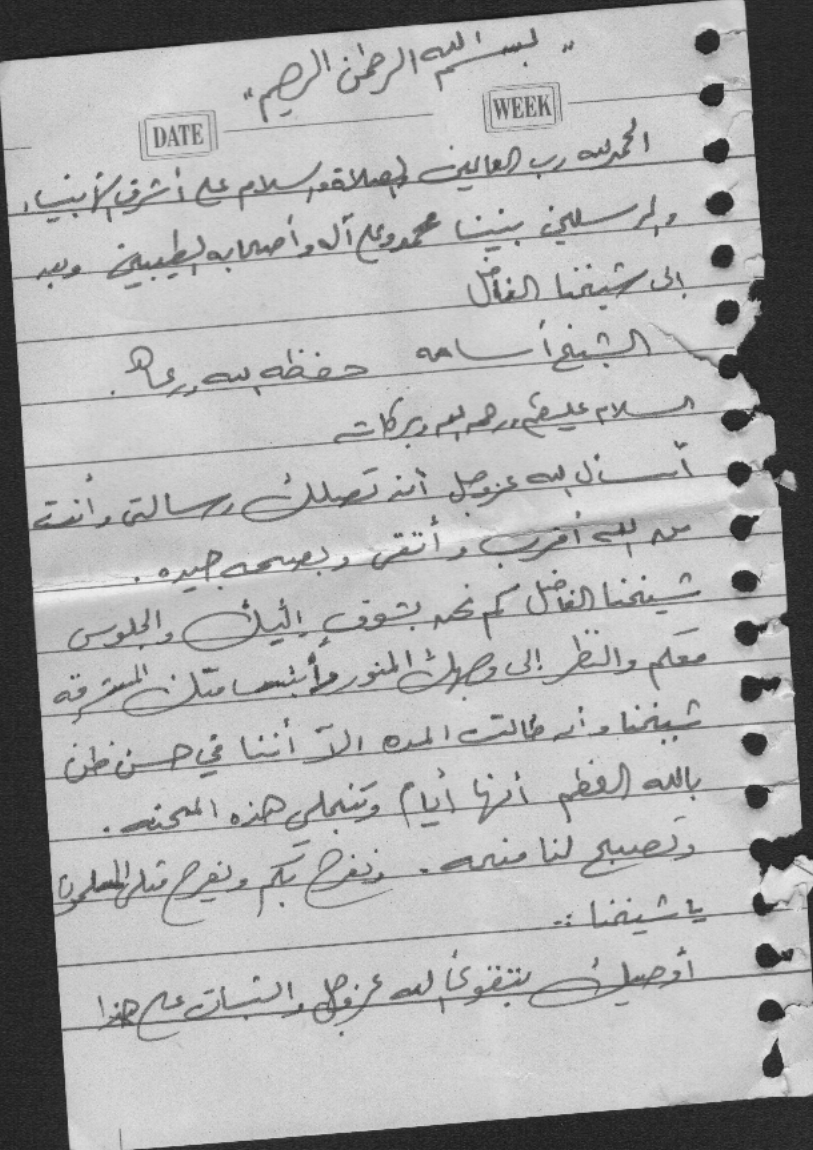 "بسم الله الرحمن الرحيم"
DATE WEEK
الحمد لله رب العالمين والصلاة والسلام على أشرف الأنبياء
والمرسلين نبينا محمد وعلى آله وأصحابه الطيبين وبعد
إلى شيخنا الفاضل
الشيخ أسامه حفظه الله ورعاه.
السلام عليكم ورحمه الله وبركاته
أسأل الله عزوجل أن تصلك رسالتي وأنت
من الله أقرب وأتقى وبصحه جيده.
شيخنا الفاضل كم نحن بشوق إليك والجلوس
معكم والنظر إلى وجهك المنور وأبتسامتك المشرقه
شيخنا وأن طالت المده الآ أننا في حسن ظن
بالله العظم أنها أيام وتنجلي هذه المحنه.
وتصبح لنا منحه. ونفرح بكم ويفرح المسلمون
يا شيخنا ..
أوصيك بتقوى الله عزوجل والثبات على هذا